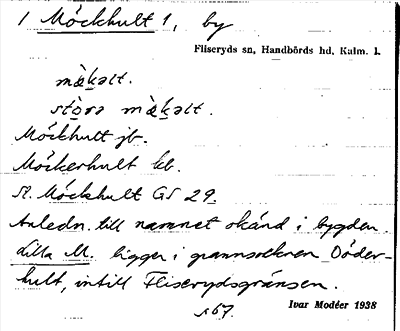 1 Möckhult 1, by
Fliseryds sn, Handbörds hd, Kalm. l.
mö̀kəlt.
stòra mö̀kəlt.
Möckhult jb.
Möckerhult kb.
St. Möckhult GS 29.
Anledn. till namnet okänd i bygden.
Lilla M. ligger i grannsocknen Döder-
hult, intill Fliserydsgränsen.
s 67.
Ivar Modéer 1938